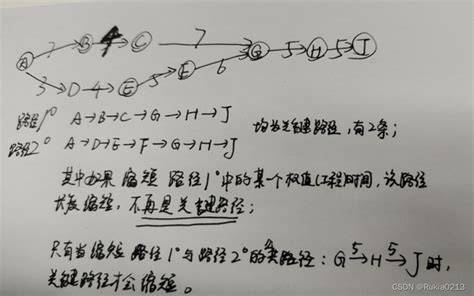 A 7 B 4 C 7 G 5 H 5 J
3 D 4 E 5 F 6
路径1° A→B→C→G→H→J 均为关键路径,有2条;
路径2° A→D→E→F→G→H→J
其中如果 缩短 路径1°中的某个权值(工程)时间,该路径
长度缩短,不再是关键路径;
只有当缩短 路径1°与路径2°的公共路径:G 5→H 5→J时,
关键路径才会缩短。
CSDN @Rukia0213